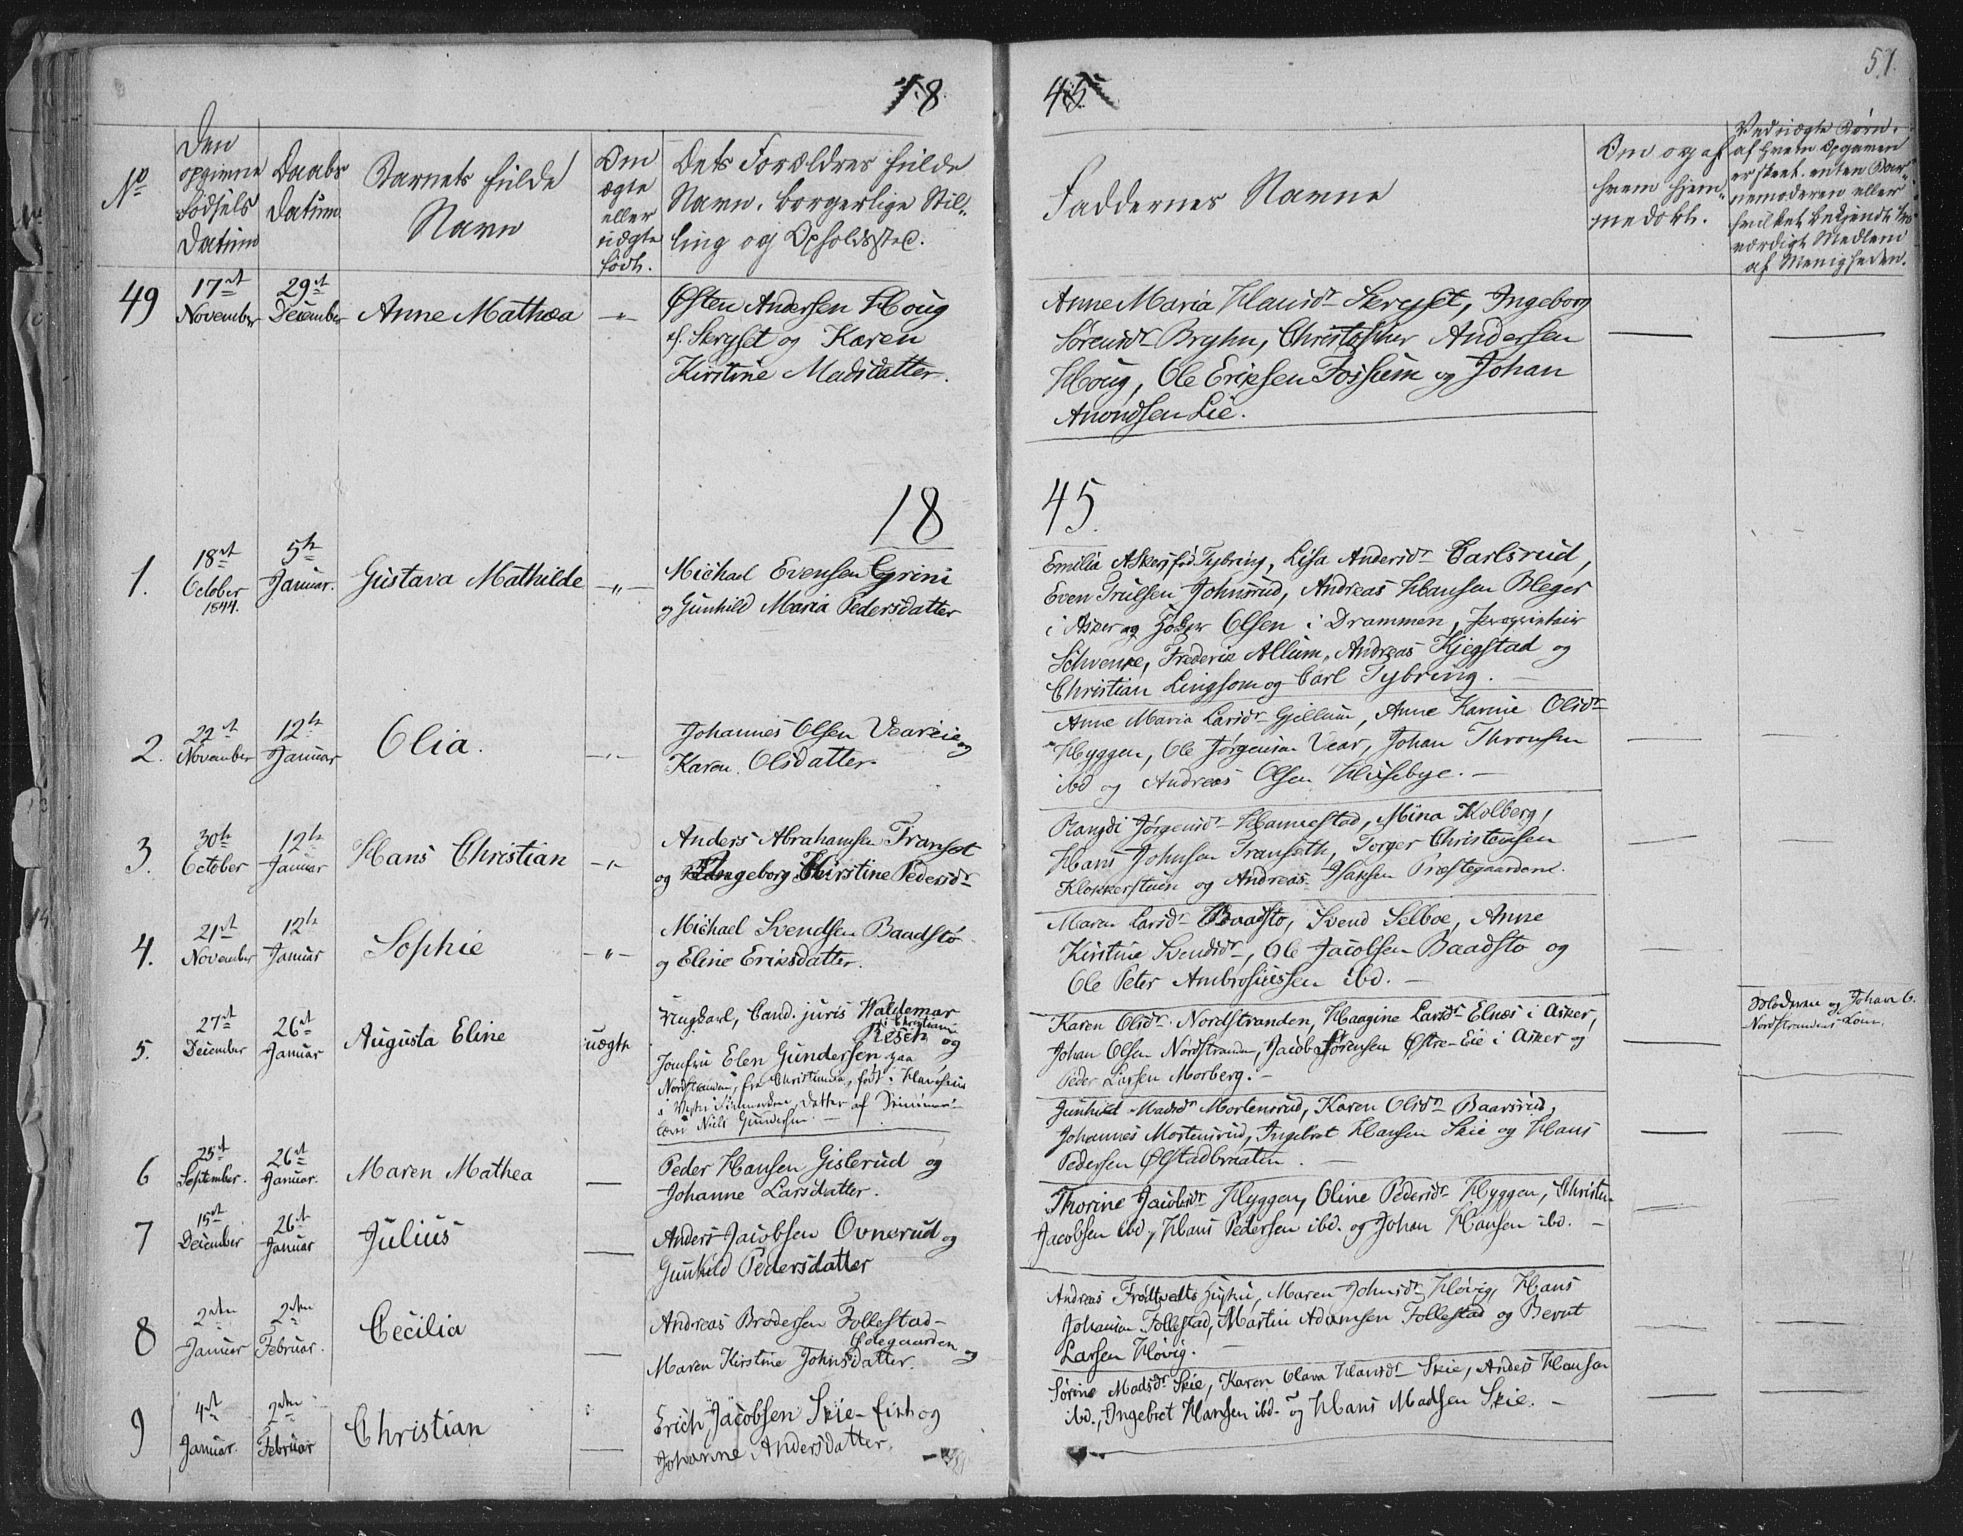 18
45.
51.
No
Den opgivne Fødsels Datum
Daabs Datum
Barnets fulde Navn
Om ægte eller uægte født.
Dets Forældres fulde Navn, borgerlige Stilling og Opholdssted.
Faddernes Navne
Om og af hvem hjemmedøbt.
Ved uægte Børn, af hvem Opgaven er skeet, enten Barnemoderen eller hvilket bekjendt troværdigt Medlem af Menigheden.
49
17de November
29de December
Anne Mathea
Østen Andersen Houg
f. Skryset og Karen
Kirstine Madsdatter.
Anne Maria Hansdr Skryset, Ingeborg
Sørensdr Bryhn, Christopher Andersen
Houg, Ole Eriksen Fossum og Johan
Anondsen Lie.
18
45.
1.
18de October 1844.
5te Januar.
Gustava Mathilde
Michael Evensen Grini
og Gunhild Maria Pedersdatter
Emilia Asker fød Tybring, Lisa Andersdr Carlsrud,
Even Trulsen Johnsrud, Andreas Hansen Bleger
i Asker og Olsen i Drammen, Proprietair
Schvenke, Frederic Allum, Andreas Kjegstad og
Christian Lingsom og Carl Tybring.
2.
22de November
12te Januar
Olia.
Johannes Olsen Veareie og
Karen Olsdatter.
Anne Maria Larsdr Gjellum, Anne Karine Olsdr
Hyggen, Ole Jørgensen Vear, Johan Thronsen
ibd og Andreas Olsen Husebye.
3.
30te October
12te Januar
Hans Christian
Anders Abrahamsen Transet
og Ingeborg Kirstine Pedersdr
Rangdi Jørgensdr Hannestad, Mina Kolberg,
Hans Johnsen Transeth, Torger Christensen
Klokkerstuen og Andreas Isaksen Præstegaardene.
4.
21de November
12te Januar
Sophie
Michael Svendsen Baadstø
og Eline Eriksdatter.
Maren Larsdr Baadstø, Svend Selboe, Anne
Kirstine Svendsdr, Ole Jacobsen Baadstø og
Ole Peter Ambrosiussen ibd.
5.
27de December
26de Januar
Augusta Eline
uægte
Ungkarl, Cand. juris Waldemar
Resen i Christiania og
Jomfru Elen Gundersen paa
Nordstranden, fra Christiania, født i
datter af
Niels Gundersen.
Karen Olsdr Nordstranden, Haagine Larsdr Elnæs i Asker,
Johan Olsen Nordstranden, Jacob Sørensen Østre-Lie i Asker og
Peder Larsen Morberg.
Moderen og Johan O.
Nordstrandens Kone.
6
25de September.
26de Januar.
Maren Mathea
Peder Hansen Gislerud og
Johanne Larsdatter.
Gunhild Madsdr Mortensrud, Karen Olsdr Baarsrud,
Johannes Mortensrud, Ingebret Hansen Skie og Hans
Pedersen Ølstadbraaten.
7
15de December
26de Januar
Julius
Anders Jacobsen Ovnerud og
Gunhild Pedersdatter
Thorine Jacobsdr Hyggen, Oline Pedersdr Hyggen, Christen
Jacobsen ibd., Hans Pedersen ibd. og Johan Hansen ibd.
8
2den Januar
2den Februar.
Cecilia
Andreas Brodersen Follestad-
Ødegaarden og
Maren Kirstine Johnsdatter.
Andreas Frøttvedts Hustru, Maren Johnsdr Høvig, Hans
Johansen Follestad, Martin Adamsen Follestad og Bernt
Larsen Høvig.
9
4de Januar.
2den Februar
Christian
Erich Jacobsen Skie-Eie og
Johanne Andersdatter.
Sørine Madsdr Skie, Karen Olava Hansdr Skie, Anders Hansen
ibd., Ingebret Hansen ibd. og Hans Madsen Skie.